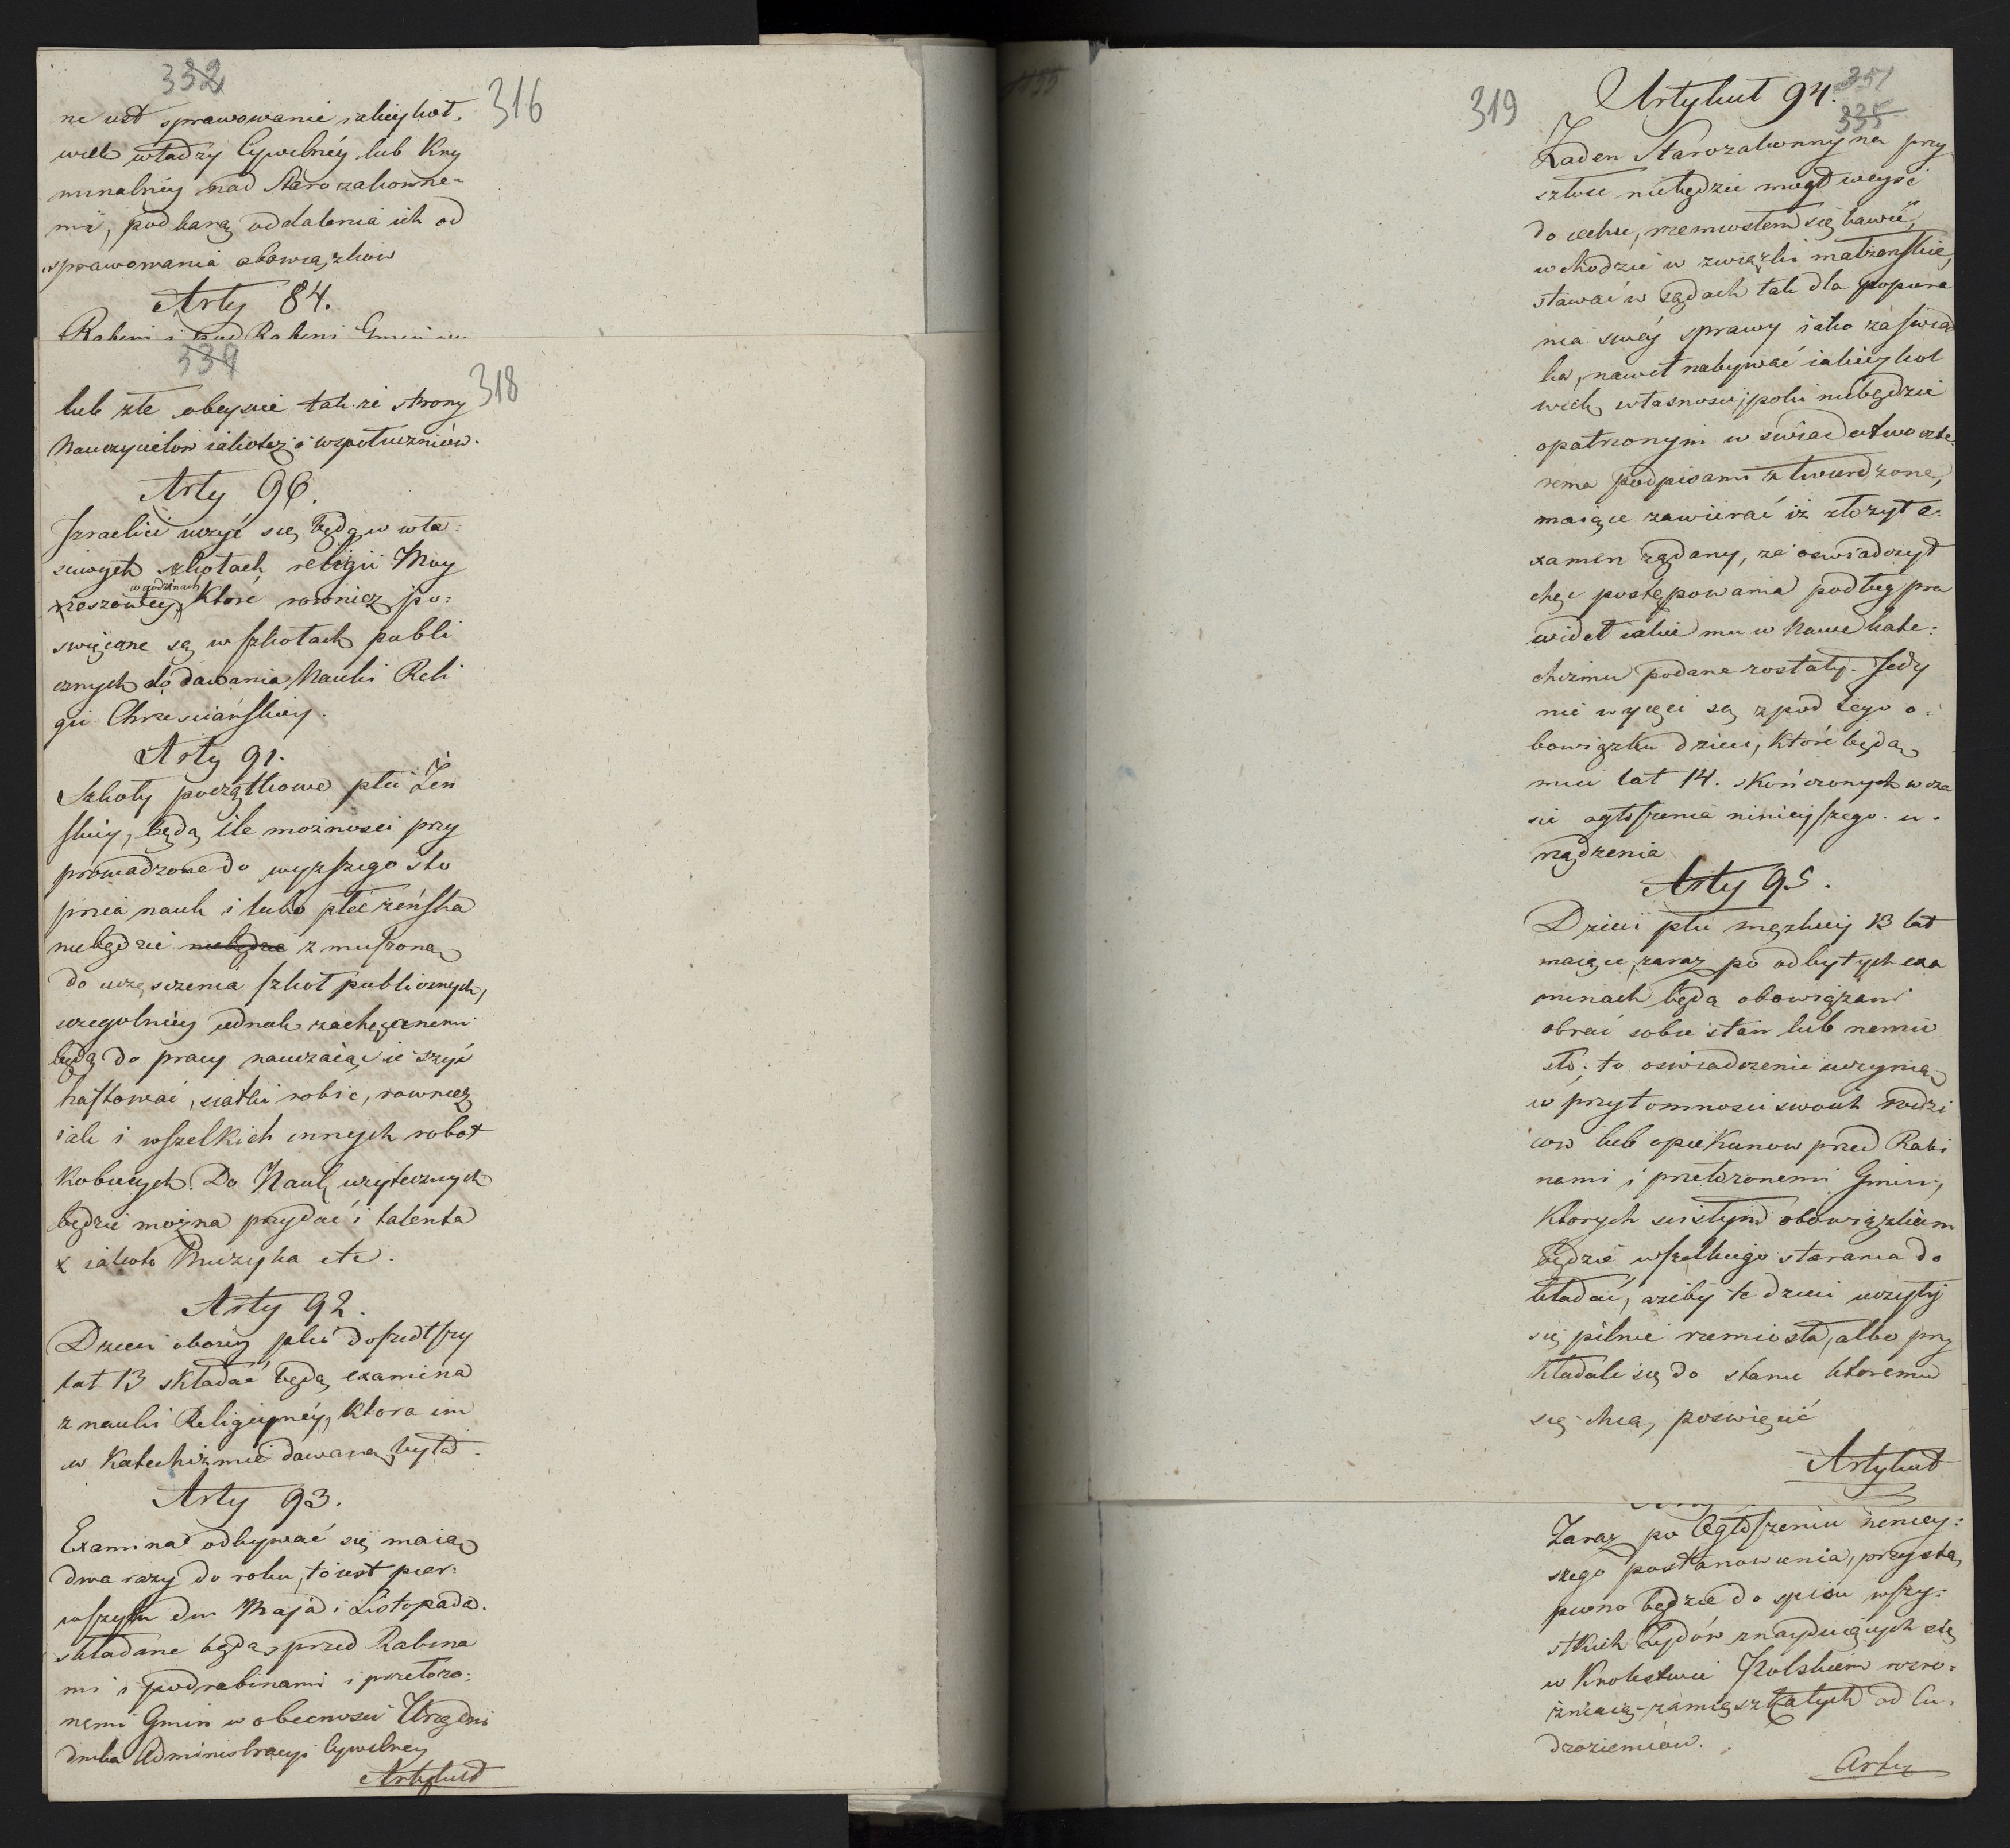 332
316
ne iest sprawowanie iakieykol-
wiek władzy Cywilnéy lub Kry
minalnéy nad Starozakonne-
mi, pod karą oddalenia ich od
sprawowania obowiązków
Arty 84.
Rabini i pod Rabini Gmin
334
318
lub złe obeyscie tak ze strony
Nauczycielów iakoteż i wspołuczniów.
Arty 90.
Izraelici uczyć się będą w wła:
sciwych szkołach religii May
żeszowey, w godzinach Które rownież po:
swięcane są w szkołach publi
cznych do dawania Nauki Reli
gii Chrzesciańskiey.
Arty 91.
Szkoły początkowe płci Żeń
skiey, będą ile możnosci przy
prowadzone do wyższego sto
pnia nauk i lubo płeć żeńska
niebędzie niebędzie zmuszoną
do uczęszczenia szkoł publicznych,
szczegolniey iednak zachęcanemi
będą do pracy nauczaiąc ie szyć
haftować, siatki robić, rownież
iak i wszelkich innych robot
Kobiecych. Do Nauk użytecznych
będzie można przydać i talenta
x iakoto Muzyka etc.
Arty 92.
Dzieci oboiey płci doszedłszy
lat 13 składać będą examina
z nauki Religiyney, Która im
w Katechizmie dawaną była.
Arty 93.
Examina odbywać się maią
dwa razy do roku, to iest pier:
wszych dni Maja i Listopada.
składane będą przed Rabina
mi i podrabinami i przełożo:
nemi Gmin w obecnosci Urzędni
Administracyi Cywilney
Artykuł
319
Artykuł 94.
351
335
Żaden Starozakonny na przy
szłosc niebędzie mogł weyść
do cechu, rzemiosłem się bawić,
wchodzić w związki małżeńskie,
stawać w sądach tak dla popiera
nia swéy sprawy iako za swiad
ka, nawet nabywać iakieykol
wiek własnosci, poki niebędzie
opatrzonym w swiadectwo czte-
rema podpisami ztwierdzone,
maiące zawierać iż złożył e-
xamen żądany, że oswiadczył
chęc postępowania podług pra
wideł iakie mu w Nauce kate:
chizmu podane zostały. Jedy
nie wyięci są z pod tego o:
bowiązku dzieci, Które będą
mieć lat 14. skończonych w cza
sie ogłoszenia ninieyszego u-
rządzenia
Arty 95.
Dzieci płci męzkiey 13 lat
maiące, zaraz po odbytych exa
minach będą obowiązani
obrać sobie stan lub rzemio
sło; to oswiadczenie uczynią
w przytomnosci swoich rodzi
cow lub opiekunow przed Rabi
nami i przełożonemi Gmin,
Ktorych scisłym obowiązkiem
będzie wszelkiego starania do
kładać, ażeby te dzieci uczyły
się pilnie rzemiosła, albo przy
kładali się do stanu któremu
się chcą poswięcić
Artykuł
Zaraz po Ogłoszeniu niniey:
szego postanowienia, przystą
piono będzie do spisu wszy:
stkich Żydów znayduiących się
w Krolestwie Polskiem rozro-
żniaiąc zamięszkałych od Cu-
dzoziemców.
Arty